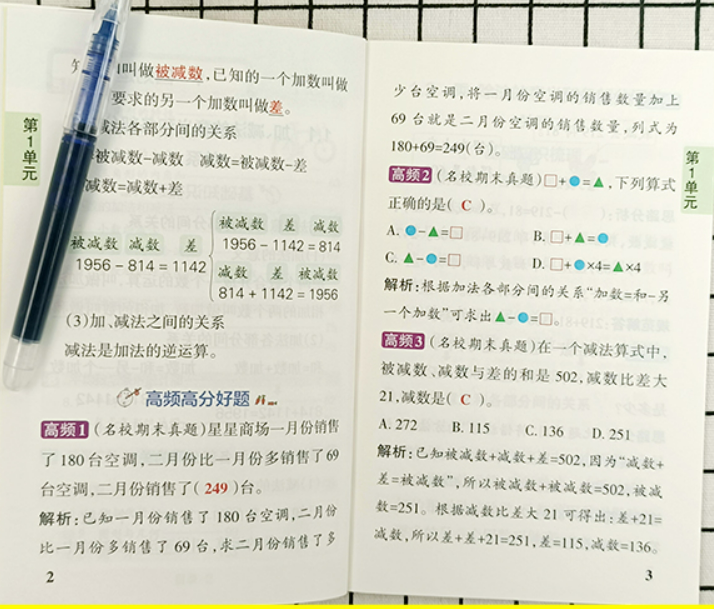 第1单元
知 叫做被减数,已知的一个加数叫做
要求的另一个加数叫做差。
减法各部分间的关系
被减数-减数 减数=被减数-差
减数=减数+差
被减数 差 减数
1956-1142=814
被减数 减数 差
1956-814=1142
减数 差 被减数
814+1142=1956
(3)加、减法之间的关系
减法是加法的逆运算。
高频高分好题
高频1 (名校期末真题)星星商场一月份销售
了180台空调,二月份比一月份多销售了69
台空调,二月份销售了( 249 )台。
解析:已知一月份销售了180台空调,二月份
比一月份多销售了69台,求二月份销售了多
2
少台空调,将一月份空调的销售数量加上
69台就是二月份空调的销售数量,列式为
180+69=249(台)。
第1单元
高频2 (名校期末真题)□+●=▲,下列算式
正确的是( C )。
A. ●-▲=□ B. □+▲=●
C. ▲-●=□ D. □+●×4=▲×4
解析:根据加法各部分间的关系“加数=和-另
一个加数”可求出▲-●=□。
高频3 (名校期末真题)在一个减法算式中,
被减数、减数与差的和是502,减数比差大
21,减数是( C )。
A. 272 B. 115 C. 136 D. 251
解析:已知被减数+减数+差=502,因为“减数+
差=被减数”,所以被减数+被减数=502,被减
数=251。根据减数比差大21可得出:差+21=
减数,所以差+差+21=251,差=115,减数=136。
3